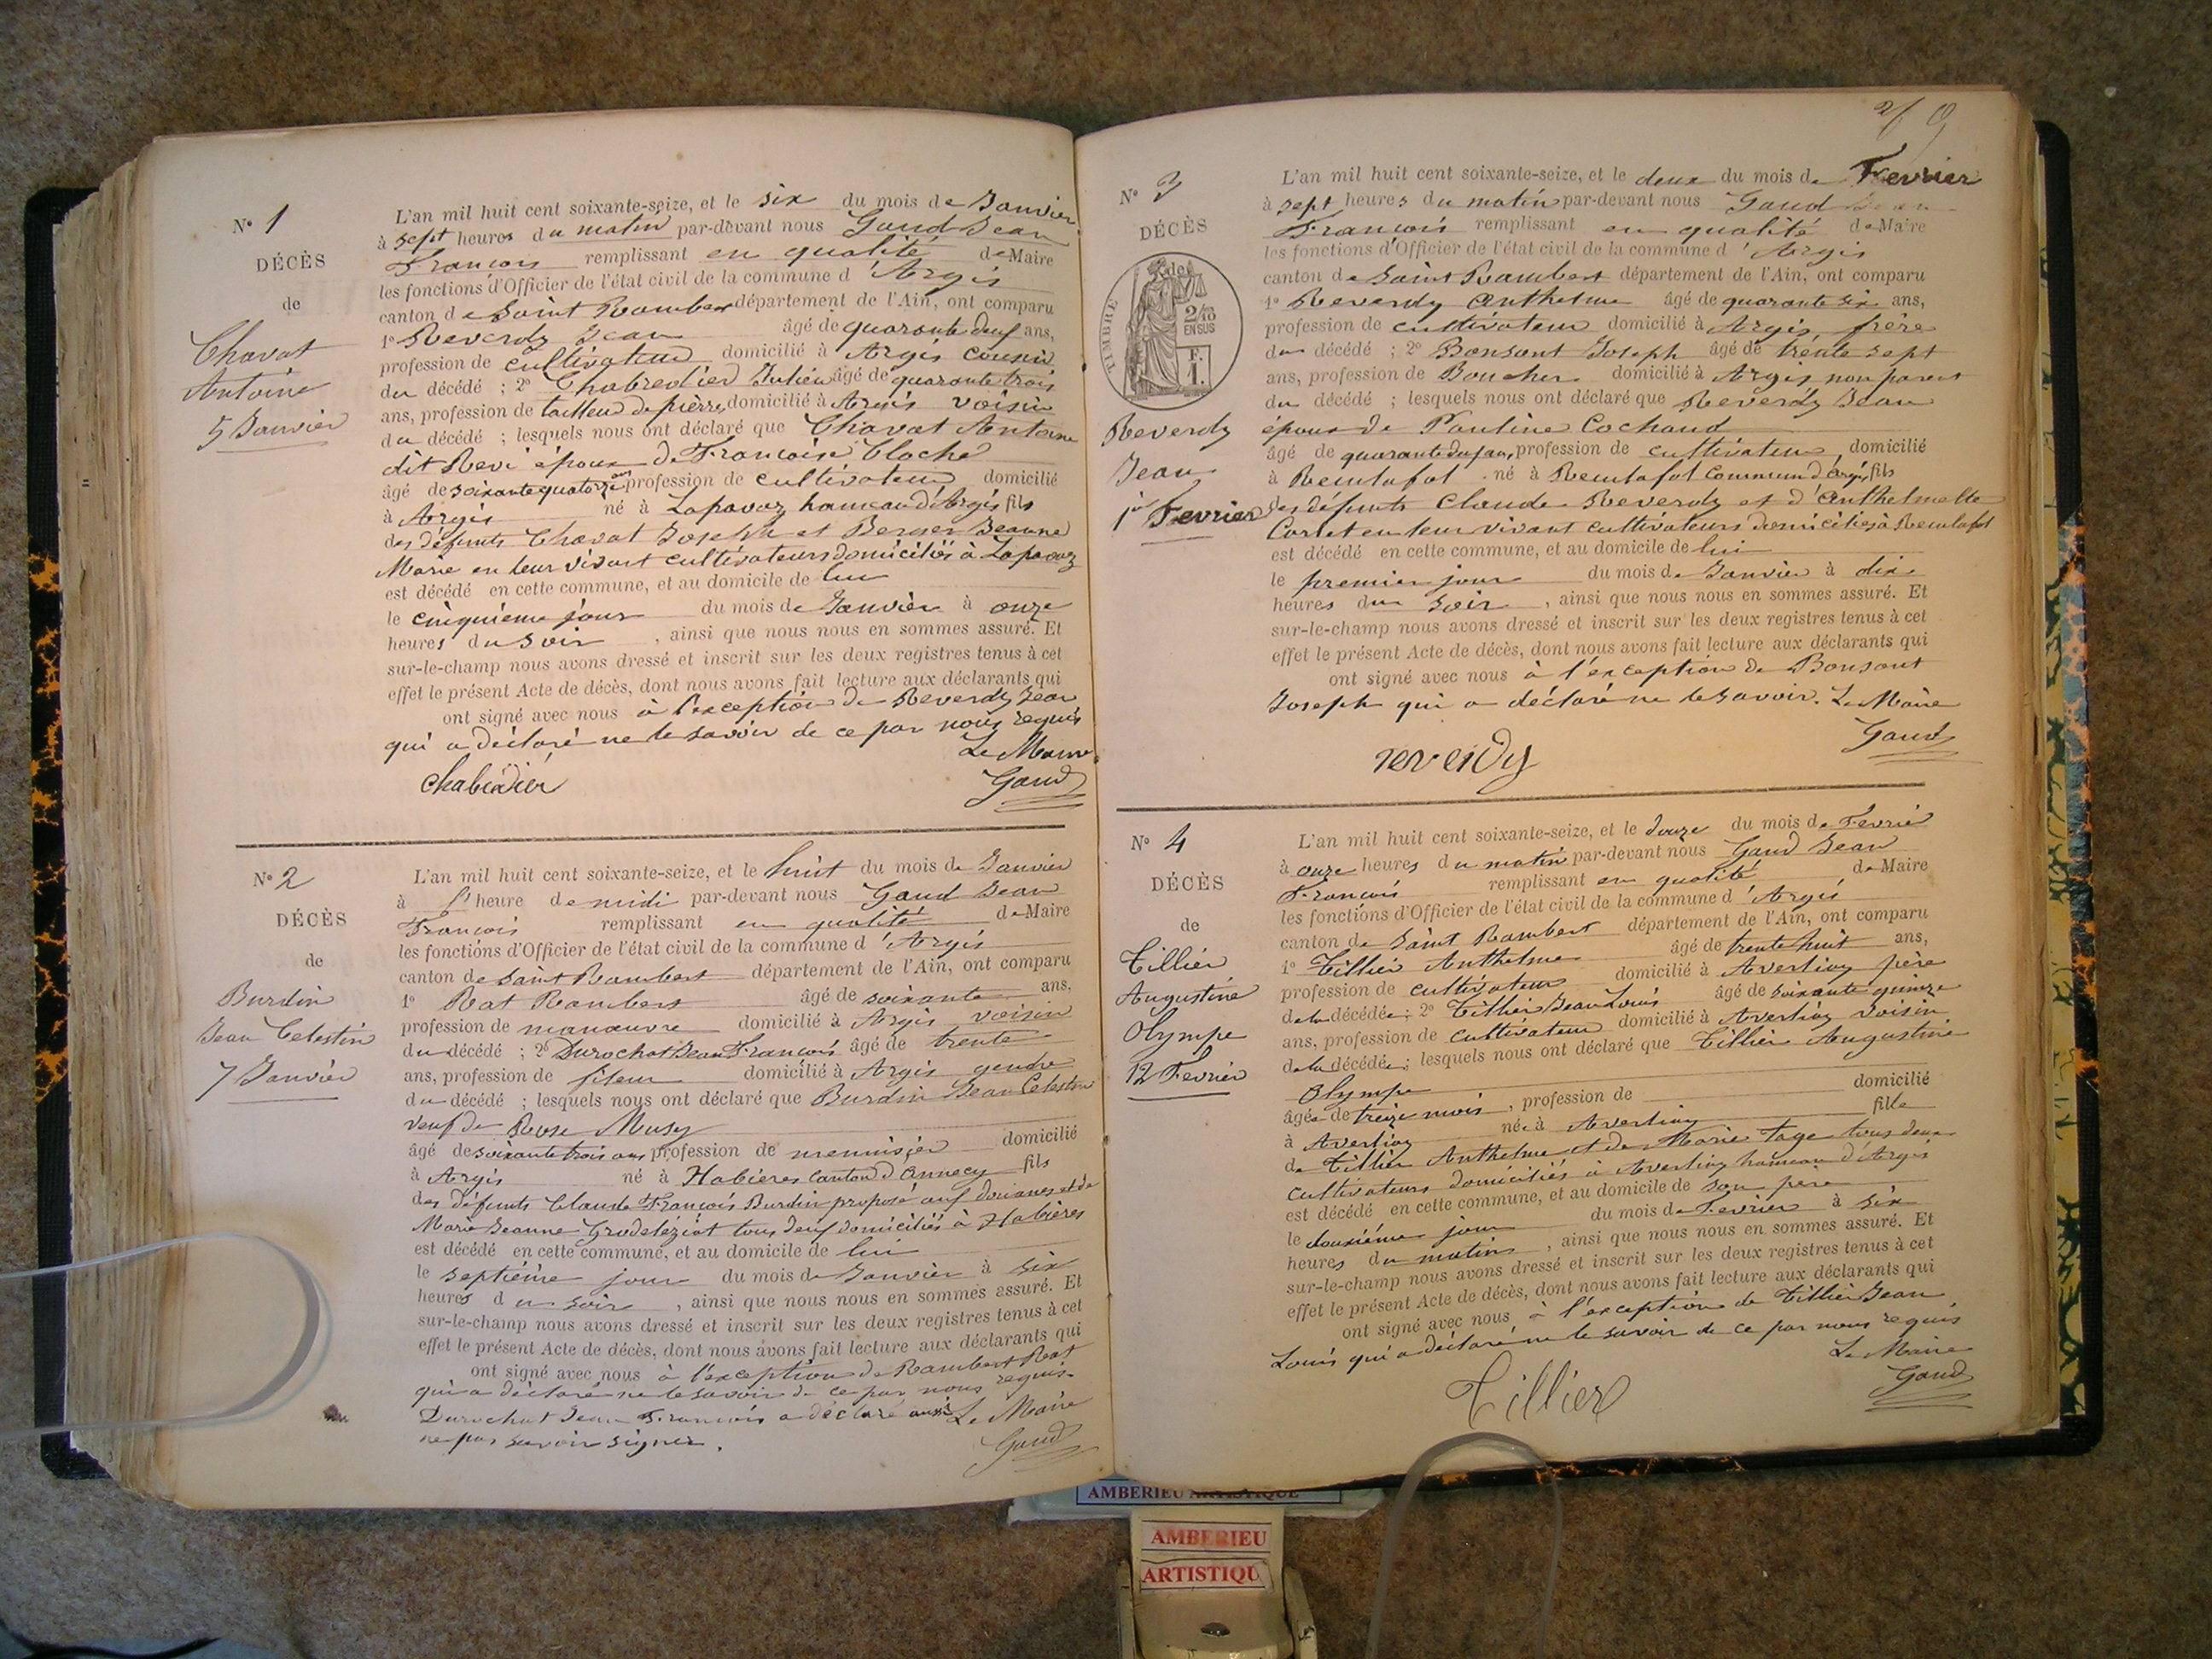 N° 1
DÉCÈS
de
Chavat
Antoine
5 Janvier
L'an mil huit cent soixante-seize, et le six du mois de Janvier
à sept heures du matin par-devant nous Gaud Jean
François remplissant en qualité de Maire
les fonctions d'Officier de l'état civil de la commune d'Argis
canton de Saint Rambert département de l'Ain, ont comparu
1° Reverdy Jean âgé de quarante deux ans,
profession de cultivateur domicilié à Argis cousin
du décédé ; 2° Chabredier Julien âgé de quarante trois
ans, profession de tailleur de pierre, domicilié à Argis voisin
du décédé ; lesquels nous ont déclaré que Chavat Antoine
dit Revi époux de Françoise Cloche
âgé de soixante quatorze ans profession de cultivateur domicilié
à Argis né à Lapavaz hameau d'Argis fils
des défunts Chavat Joseph et Berger Jeanne
Marie en leur vivant cultivateurs domiciliés à Lapavaz
est décédé en cette commune, et au domicile de lui
le cinquième jour du mois de Janvier à onze
heures du soir , ainsi que nous nous en sommes assuré. Et
sur-le-champ nous avons dressé et inscrit sur les deux registres tenus à cet
effet le présent Acte de décès, dont nous avons fait lecture aux déclarants qui
ont signé avec nous à l'exception de Reverdy Jean
qui a déclaré ne le savoir de ce par nous requis
Le Maire
Gaud
N° 2
DÉCÈS
de
Burdin
Jean Celestin
7 Janvier
L'an mil huit cent soixante-seize, et le huit du mois de Janvier
à l'heure de midi par-devant nous Gaud Jean
François remplissant en qualité de Maire
les fonctions d'Officier de l'état civil de la commune d'Argis
canton de Saint Rambert département de l'Ain, ont comparu
1° Rat Rambert âgé de soixante ans,
profession de manœuvre domicilié à Argis voisin
du décédé ; 2° Durochat Jean François âgé de trente
ans, profession de fileur domicilié à Argis gendre
du décédé ; lesquels nous ont déclaré que Burdin Jean Celestin
veuf de Rose Musy
âgé de soixante trois ans profession de menuisier domicilié
à Argis né à Habières canton d'Annecy fils
des défunts Claude François Burdin proposé aux douanes et de
Marie Jeanne tous deux domiciliés à Habières
est décédé en cette commune, et au domicile de lui
le septième jour du mois de Janvier à six
heures du soir , ainsi que nous nous en sommes assuré. Et
sur-le-champ nous avons dressé et inscrit sur les deux registres tenus à cet
effet le présent Acte de décès, dont nous avons fait lecture aux déclarants qui
ont signé avec nous à l'exception de Rambert Rat
qui a déclaré ne le savoir de ce par nous requis.
Durochat Jean François a déclaré aussi Le Maire
ne pas savoir signer.
Gaud
9
N° 3
DÉCÈS
de
TIMBRE
2/10
EN SUS
F.
1.
Reverdy
Jean
1er Fevrier
L'an mil huit cent soixante-seize, et le deux du mois de Fevrier
à sept heures du matin par-devant nous Gaud Jean
François remplissant en qualité de Maire
les fonctions d'Officier de l'état civil de la commune d'Argis
canton de Saint Rambert département de l'Ain, ont comparu
1° Reverdy Anthelme âgé de quarante six ans,
profession de cultivateur domicilié à Argis, frère
du décédé ; 2° Bonsant Joseph âgé de trente sept
ans, profession de Boucher domicilié à Argis non parent
du décédé ; lesquels nous ont déclaré que Reverdy Jean
époux de Pauline Cochand
âgé de quarante deux ans, profession de cultivateur, domicilié
à Reculafol né à Reculafol commune d'Argis, fils
des défunts Claude Reverdy et d'Anthelmette
en leur vivant cultivateurs domiciliés à Reculafol
est décédé en cette commune, et au domicile de lui
le premier jour du mois de Janvier à dix
heures du soir , ainsi que nous nous en sommes assuré. Et
sur-le-champ nous avons dressé et inscrit sur les deux registres tenus à cet
effet le présent Acte de décès, dont nous avons fait lecture aux déclarants qui
ont signé avec nous à l'exception de Bonsant
Joseph qui a déclaré ne le savoir. Le Maire
Gaud
reverdy
N° 4
DÉCÈS
de
Tillier
Augustine
Olympe
12 Fevrier
L'an mil huit cent soixante-seize, et le douze du mois de Février
à onze heures du matin par-devant nous Gaud Jean
François remplissant en qualité de Maire
les fonctions d'Officier de l'état civil de la commune d'Argis
canton de Saint Rambert département de l'Ain, ont comparu
1° Tillier Anthelme âgé de trente huit ans,
profession de cultivateur domicilié à Averliaz père
de la décédée ; 2° Tillier Jean Louis âgé de soixante quinze
ans, profession de cultivateur domicilié à Averliaz voisin
de la décédée ; lesquels nous ont déclaré que Tillier Augustine
Olympe
âgée de treize mois, profession de domicilié
à Averliaz née à Averliaz fille
de Tillier Anthelme et de Marie Tage tous deux
cultivateurs domiciliés à Averliaz hameau d'Argis
est décédé en cette commune, et au domicile de son père
le douzième jour du mois de Fevrier à six
heures du matin , ainsi que nous nous en sommes assuré. Et
sur-le-champ nous avons dressé et inscrit sur les deux registres tenus à cet
effet le présent Acte de décès, dont nous avons fait lecture aux déclarants qui
ont signé avec nous à l'exception de Tillier Jean
Louis qui a déclaré ne le savoir de ce par nous requis
Le Maire
Gaud
Tillier
AMBERIEU ARTISTIQUE
AMBERIEU
ARTISTIQU